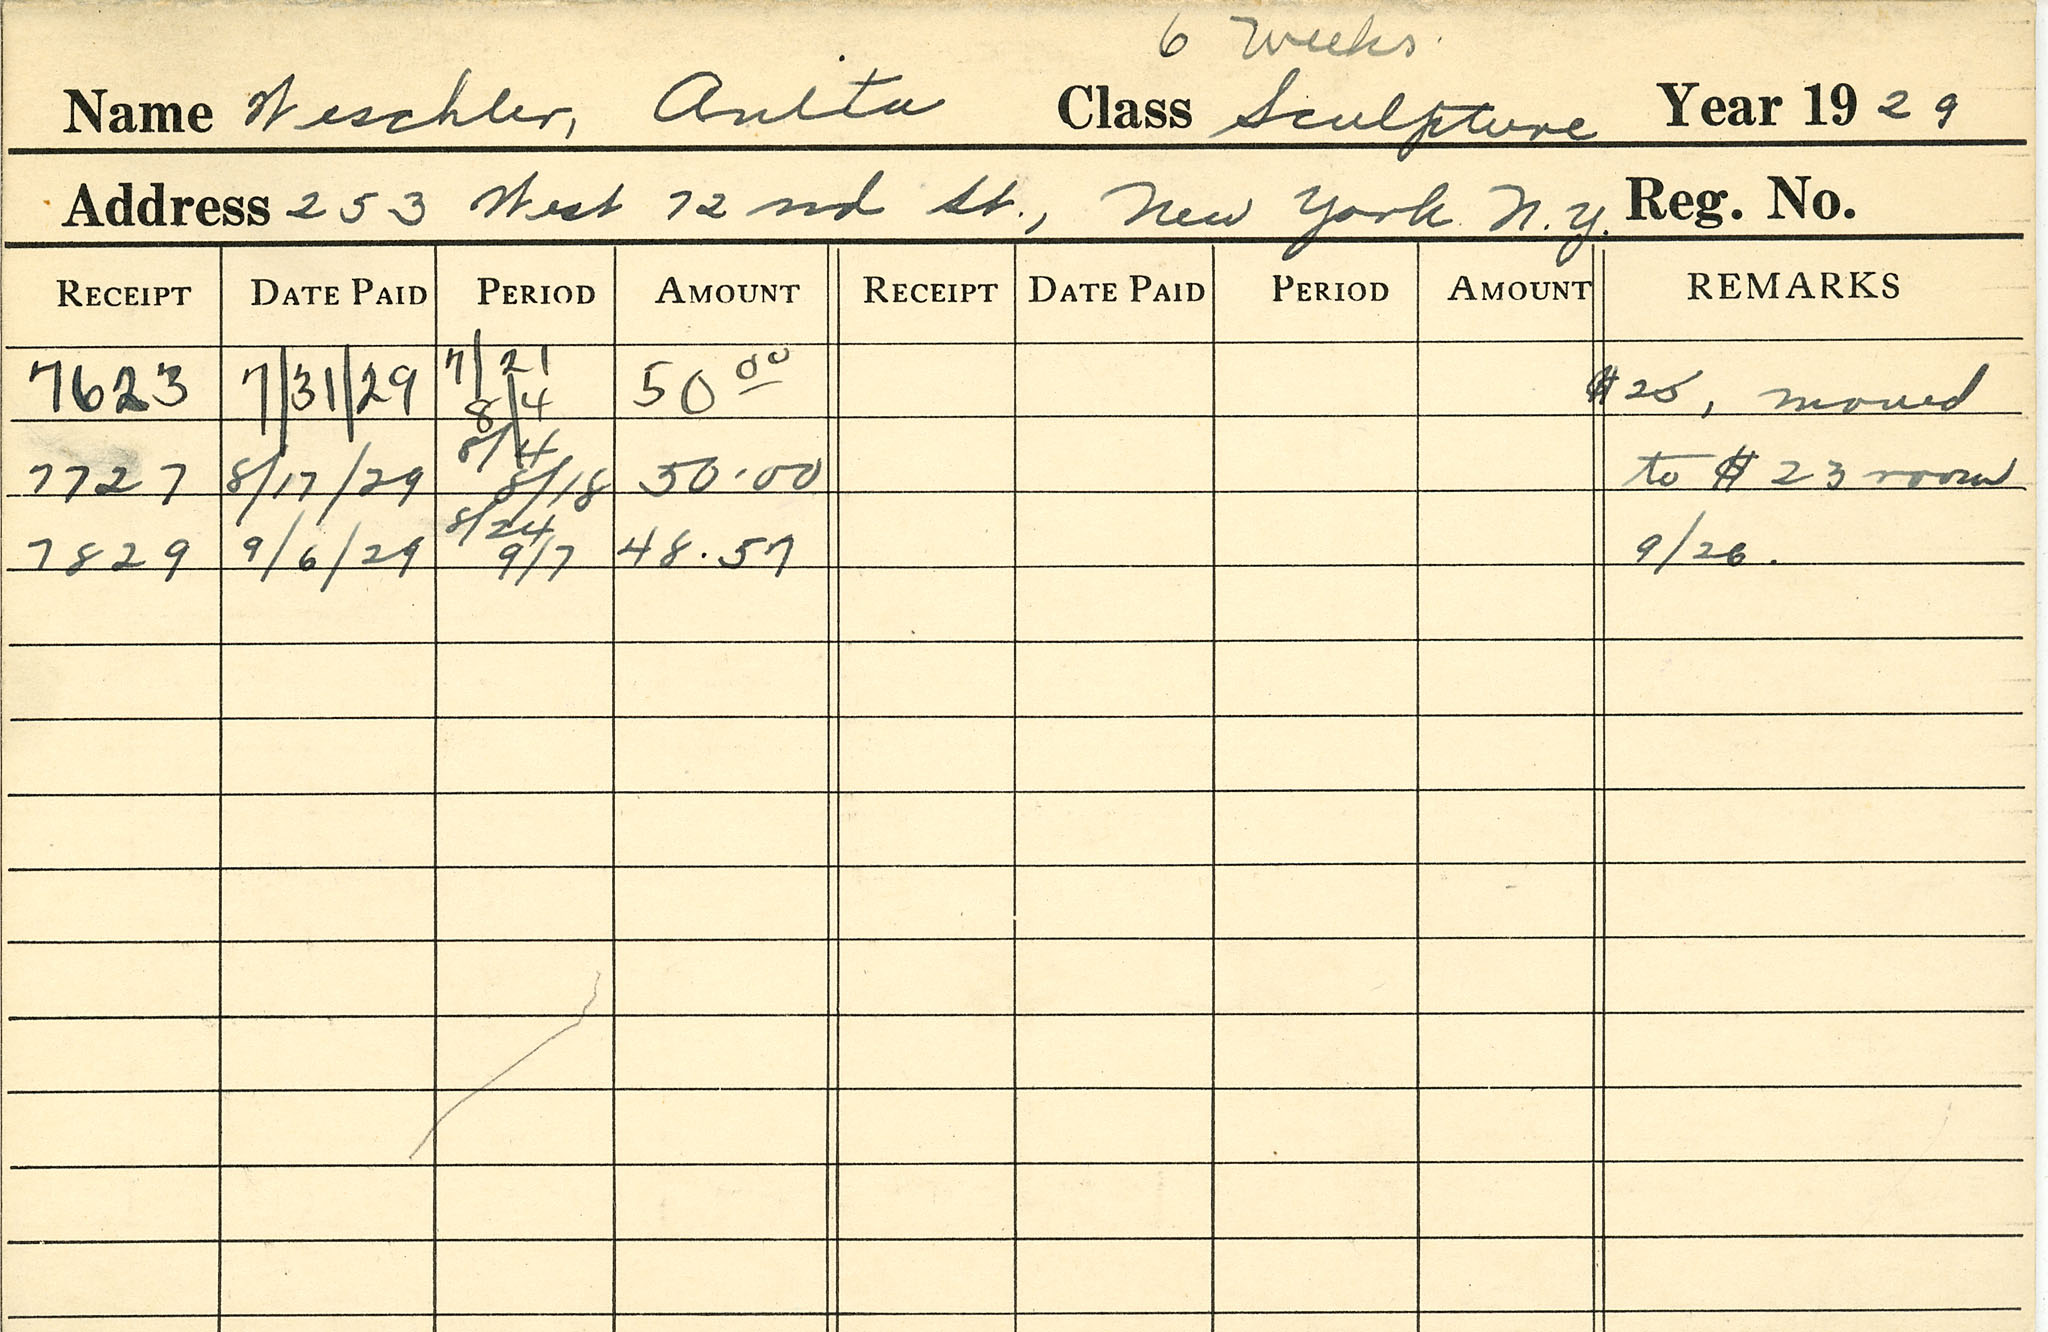 6 Weeks.
Name Weschler, Anita Class Sculpture Year 1929
Address 253 West 72nd St., New York N.Y. Reg. No.
RECEIPT DATE PAID PERIOD AMOUNT RECEIPT DATE PAID PERIOD AMOUNT REMARKS
7623 7/31/29 7/21 8/4 50 00 $25, moved
7727 8/17/29 8/4 8/18 50.00 to $23 room
7829 9/6/29 8/24 9/7 48.57 9/26.